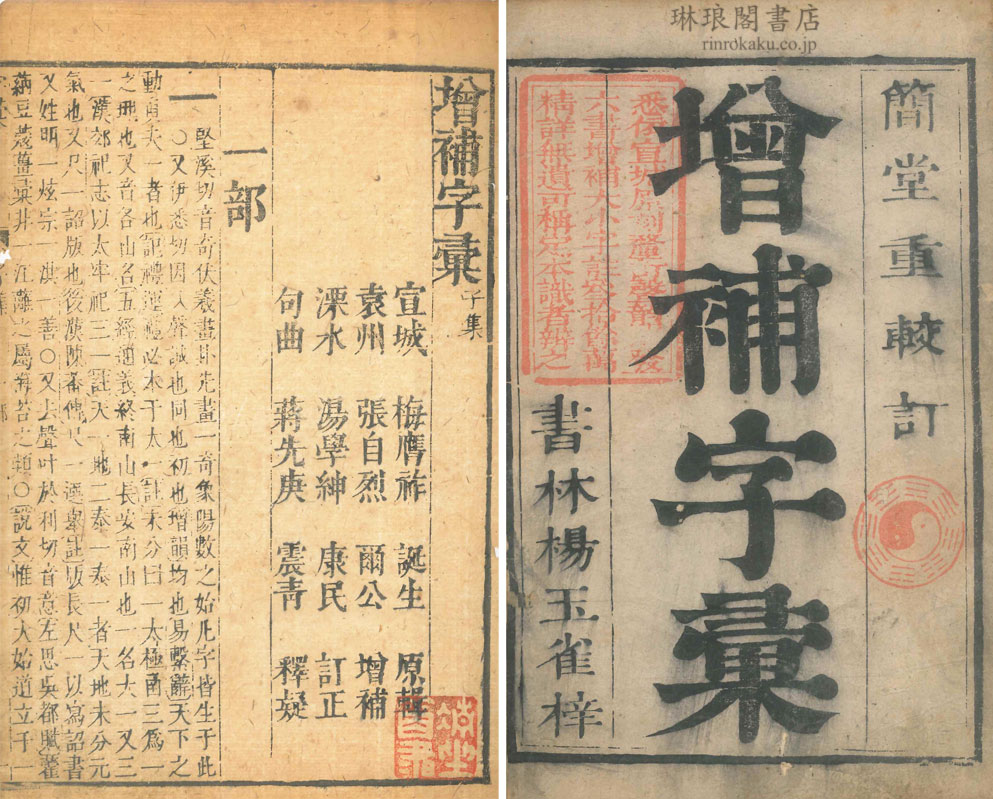 琳琅閣書店
rinrokaku.co.jp
簡堂重較訂
增補字彙
悉依宣城原刻釐訂
六書增補大小字註拾餘萬
精詳無遺可稱定本識者辨之
書林楊玉雀梓
增補字彙 子集
宣城 梅膺祚 誕生 原輯
袁州 張自烈 爾公 增補
溧水 湯學紳 康民 訂正
句曲 蔣先庚 震青 釋疑
一部
一 堅溪切音奇伏羲畫卦先畫一奇象陽數之始凡字皆生于此
○又伊悉切因入聲誠也同也初也增韻均也易繫辭天下之
動貞夫一者也記禮運禮必本于太一註未分曰一太極函三爲一
之理也又音各山名五經通義終南山長安南山也一名太一又三
一漢郊祀志以太牢祀三一註天一地二泰一泰一者天地未分元
氣也又尺一詔版也後漢陳蕃傳尺一選舉註版長尺一以寫詔書
又姓明一炫宗一淇一善○又上聲叶於利切音意左思吳都賦藿
蒳豆蔻薑彙非一江蘺之屬海苔之類○說文惟初大始道立于一